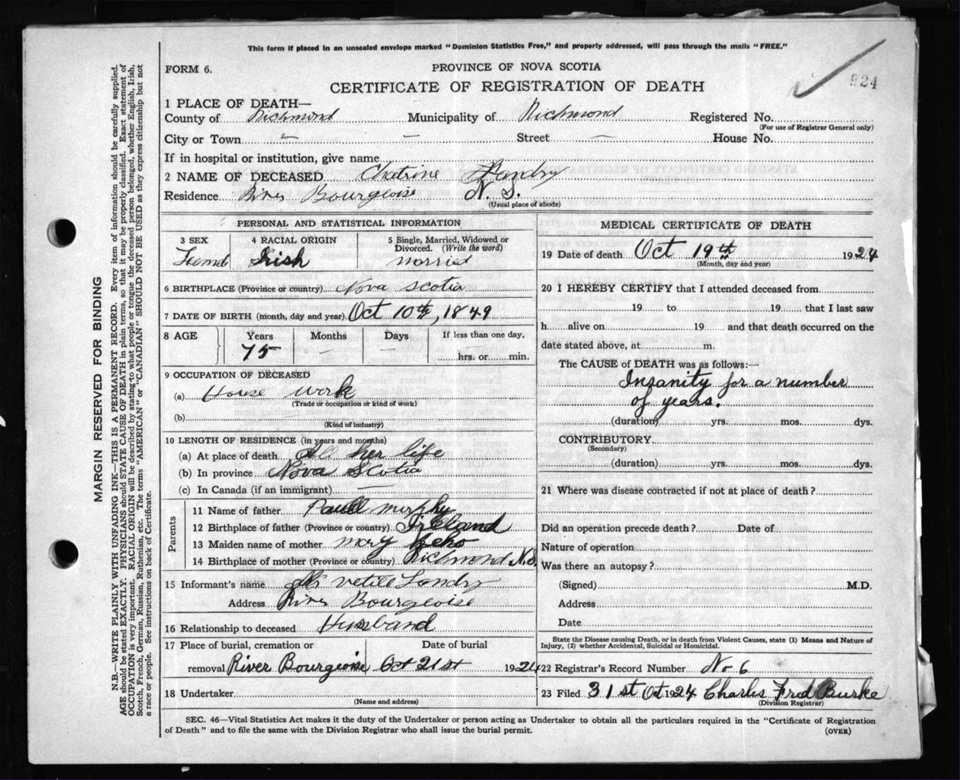 This form if placed in an unsealed envelope marked "Dominion Statistics Free," and properly addressed, will pass through the mails "FREE."
FORM 6.
PROVINCE OF NOVA SCOTIA
924
CERTIFICATE OF REGISTRATION OF DEATH
1 PLACE OF DEATH—
County of Richmond Municipality of Richmond Registered No.
(For use of Registrar General only)
City or Town — — Street — House No.
If in hospital or institution, give name
2 NAME OF DECEASED Chatrine Landry
Residence River Bourgeoise N. S.
(Usual place of abode)
PERSONAL AND STATISTICAL INFORMATION
3 SEX 4 RACIAL ORIGIN 5 Single, Married, Widowed or Divorced. (Write the word)
Irish married
6 BIRTHPLACE (Province or country) Nova Scotia
7 DATE OF BIRTH (month, day and year) Oct 10th, 1849
8 AGE Years Months Days If less than one day,
75 — — hrs. or min.
9 OCCUPATION OF DECEASED
(a) House work
(Trade or occupation or kind of work)
(b)
(Kind of industry)
10 LENGTH OF RESIDENCE (in years and months)
(a) At place of death All her life
(b) In province Nova Scotia
(c) In Canada (if an immigrant) —
Parents
11 Name of father Paull Murphy
12 Birthplace of father (Province or country) Ireland
13 Maiden name of mother Mary
14 Birthplace of mother (Province or country) Richmond N.S.
15 Informant's name Landry
Address River Bourgeoise
16 Relationship to deceased Husband
17 Place of burial, cremation or removal River Bourgeoise Date of burial Oct 21st 1924
18 Undertaker
(Name and address)
MEDICAL CERTIFICATE OF DEATH
19 Date of death Oct 19th 1924
(Month, day and year)
20 I HEREBY CERTIFY that I attended deceased from
19 to 19 that I last saw
h alive on 19 and that death occurred on
date stated above, at m.
The CAUSE of DEATH was as follows:—
Insanity for a number
of years.
(duration) yrs. mos. dys.
CONTRIBUTORY
(Secondary)
(duration) yrs. mos. dys.
21 Where was disease contracted if not at place of death?
Did an operation precede death? Date of
Nature of operation
Was there an autopsy?
(Signed) M.D.
Address
Date
State the Disease causing Death, or in death from Violent Causes, state (1) Means and Nature of
Injury, (2) whether Accidental, Suicidal or Homicidal.
22 Registrar's Record Number No 6
23 Filed 31st Oct 1924 Charles Fred Burke
(Division Registrar)
SEC. 46—Vital Statistics Act makes it the duty of the Undertaker or person acting as Undertaker to obtain all the particulars required in the "Certificate of Registration
of Death" and to file the same with the Division Registrar who shall issue the burial permit.
(OVER)
MARGIN RESERVED FOR BINDING
N.B.—WRITE PLAINLY WITH UNFADING INK—THIS IS A PERMANENT RECORD. Every item of information should be carefully supplied.
AGE should be stated EXACTLY. PHYSICIANS should STATE CAUSE OF DEATH in plain terms, so that it may be properly classified. Exact statement of
OCCUPATION is very important. RACIAL ORIGIN will be described by stating to what people or tongue the deceased person belonged, whether English, Irish,
Scotch, French, German, Russian, Ruthenian, etc. The terms "AMERICAN" or "CANADIAN" SHOULD NOT BE USED as they express citizenship but not
a race or people. See instructions on back of Certificate.